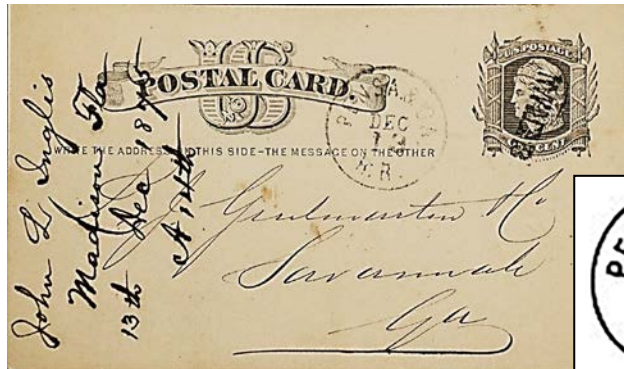 US
POSTAL CARD.
WRITE THE ADDRESS ON THIS SIDE-THE MESSAGE ON THE OTHER
U.S. POSTAGE
ONE CENT
DEC
R.R.
John L. Inglis
Madison Fla
13th Dec 1875
A 14th
Guilmartin & Co
Savannah
Ga
PE